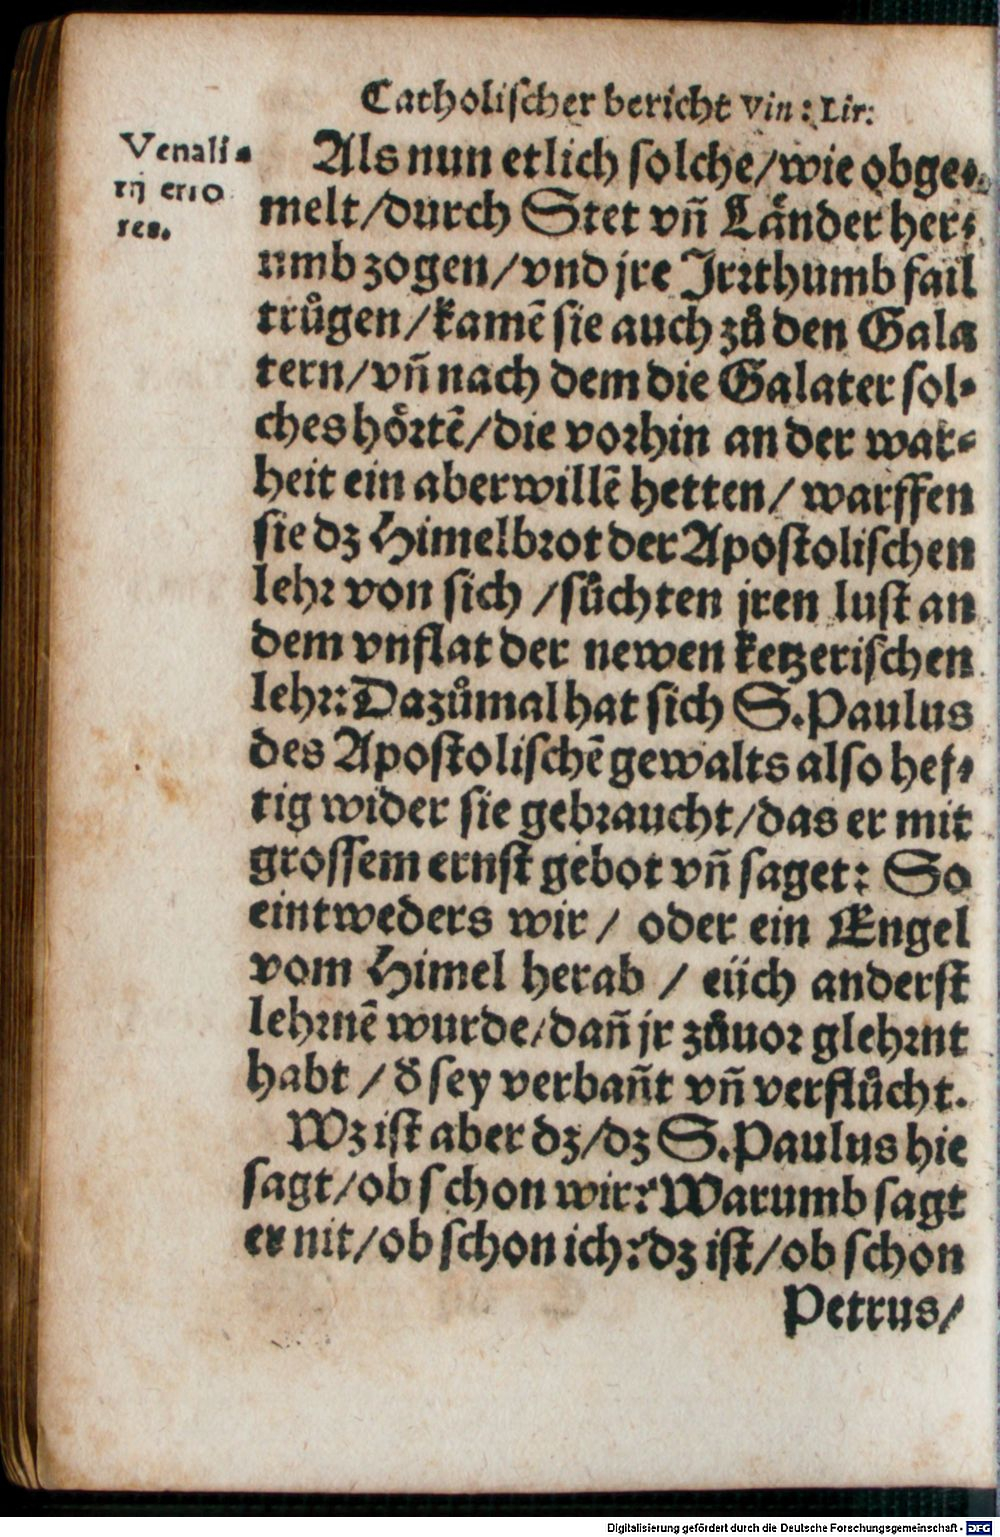 Catholischer bericht Vin: Lir:
Venali⸗
tij erro
res.
Als nun etlich solche/wie obge⸗
melt/durch Stet vñ Länder her⸗
umb zogen/vnd jre Jrꝛthumb fail
trůgen/kamẽ sie auch zů den Gala
tern/vñ nach dem die Galater sol⸗
ches hoͤꝛtẽ/die voꝛhin an der war⸗
heit ein aberwillẽ hetten/ warffen
sie dz Himelbꝛot der Apostolischen
lehꝛ von sich /sůchten jren lust an
dem vnflat der newen ketzerischen
lehꝛ: Dazůmal hat sich S. Paulus
des Apostolischẽ gewalts also hef⸗
tig wider sie gebꝛaucht/das er mit
grossem ernst gebot vñ saget: So
eintweders wir/ oder ein Engel
vom Himel herab / eüch anderst
lehꝛnẽ wurde/dañ jr zůuoꝛ glehꝛnt
habt /d̓ sey verbañt vñ verflůcht.
Wz ist aber dz/dz S. Paulus hie
sagt/ob schon wir? Warumb sagt
er nit/ob schon ich? dz ist/ob schon
Petrus/
Digitalisierung gefördert durch die Deutsche Forschungsgemeinschaft - DFG